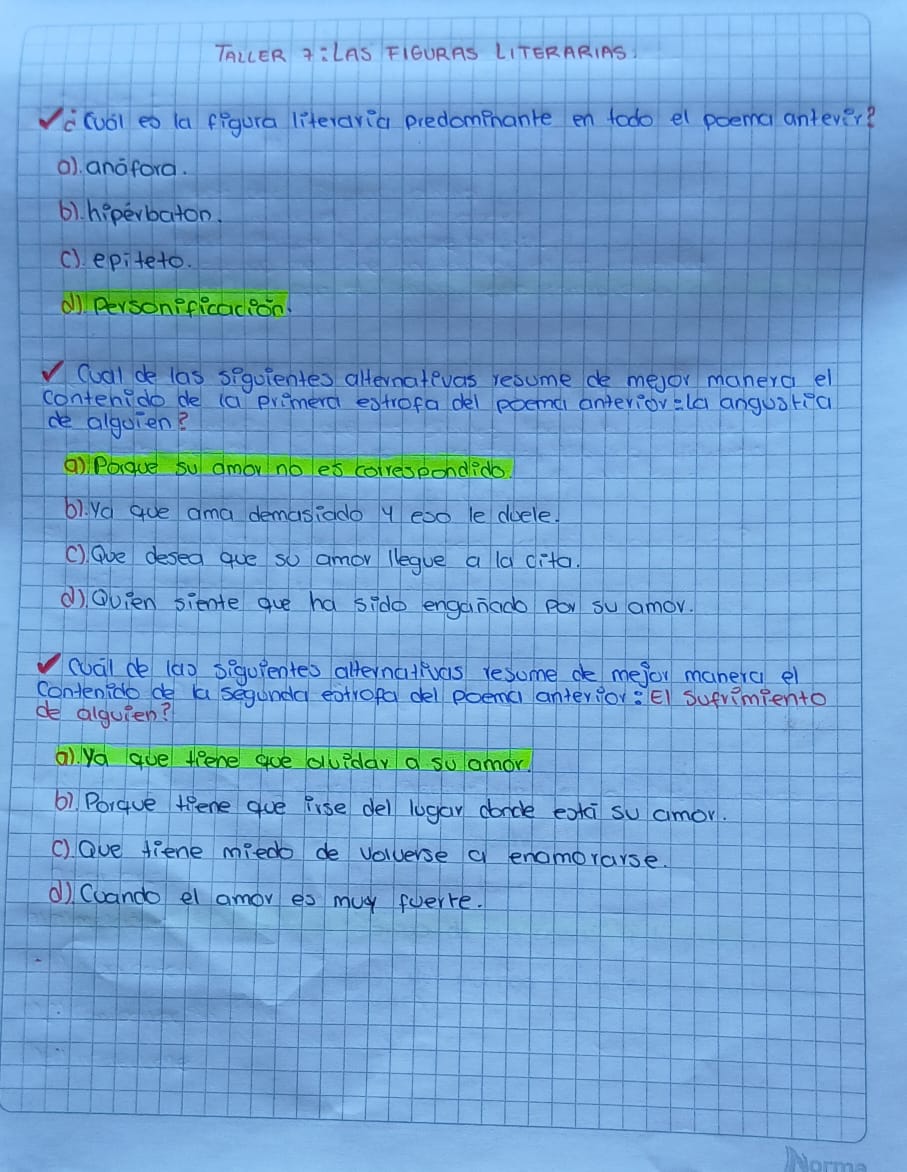 TALLER 7: LAS FIGURAS LITERARIAS.
✓ ¿Cuál es la figura literaria predominante en todo el poema anterir?
a). anáfora.
b). hipérbaton.
c). epiteto.
d). Personificación.
✓ Cual de las siguientes alternativas resume de mejor manera el
contenido de la primera estrofa del poema anterior: la angustia
de alguien?
a). Porque su amor no es correspondido.
b). Ya que ama demasiado y eso le duele.
c). Que desea que su amor llegue a la cita.
d). Quien siente que ha sido engañado por su amor.
✓ Cuál de las siguientes alternativas resume de mejor manera el
contenido de la segunda estrofa del poema anterior: El sufrimiento
de alguien?
a). Ya que tiene que olvidar a su amor.
b). Porque tiene que irse del lugar donde está su amor.
c). Que tiene miedo de volverse a enamorarse.
d). Cuando el amor es muy fuerte.
Norma